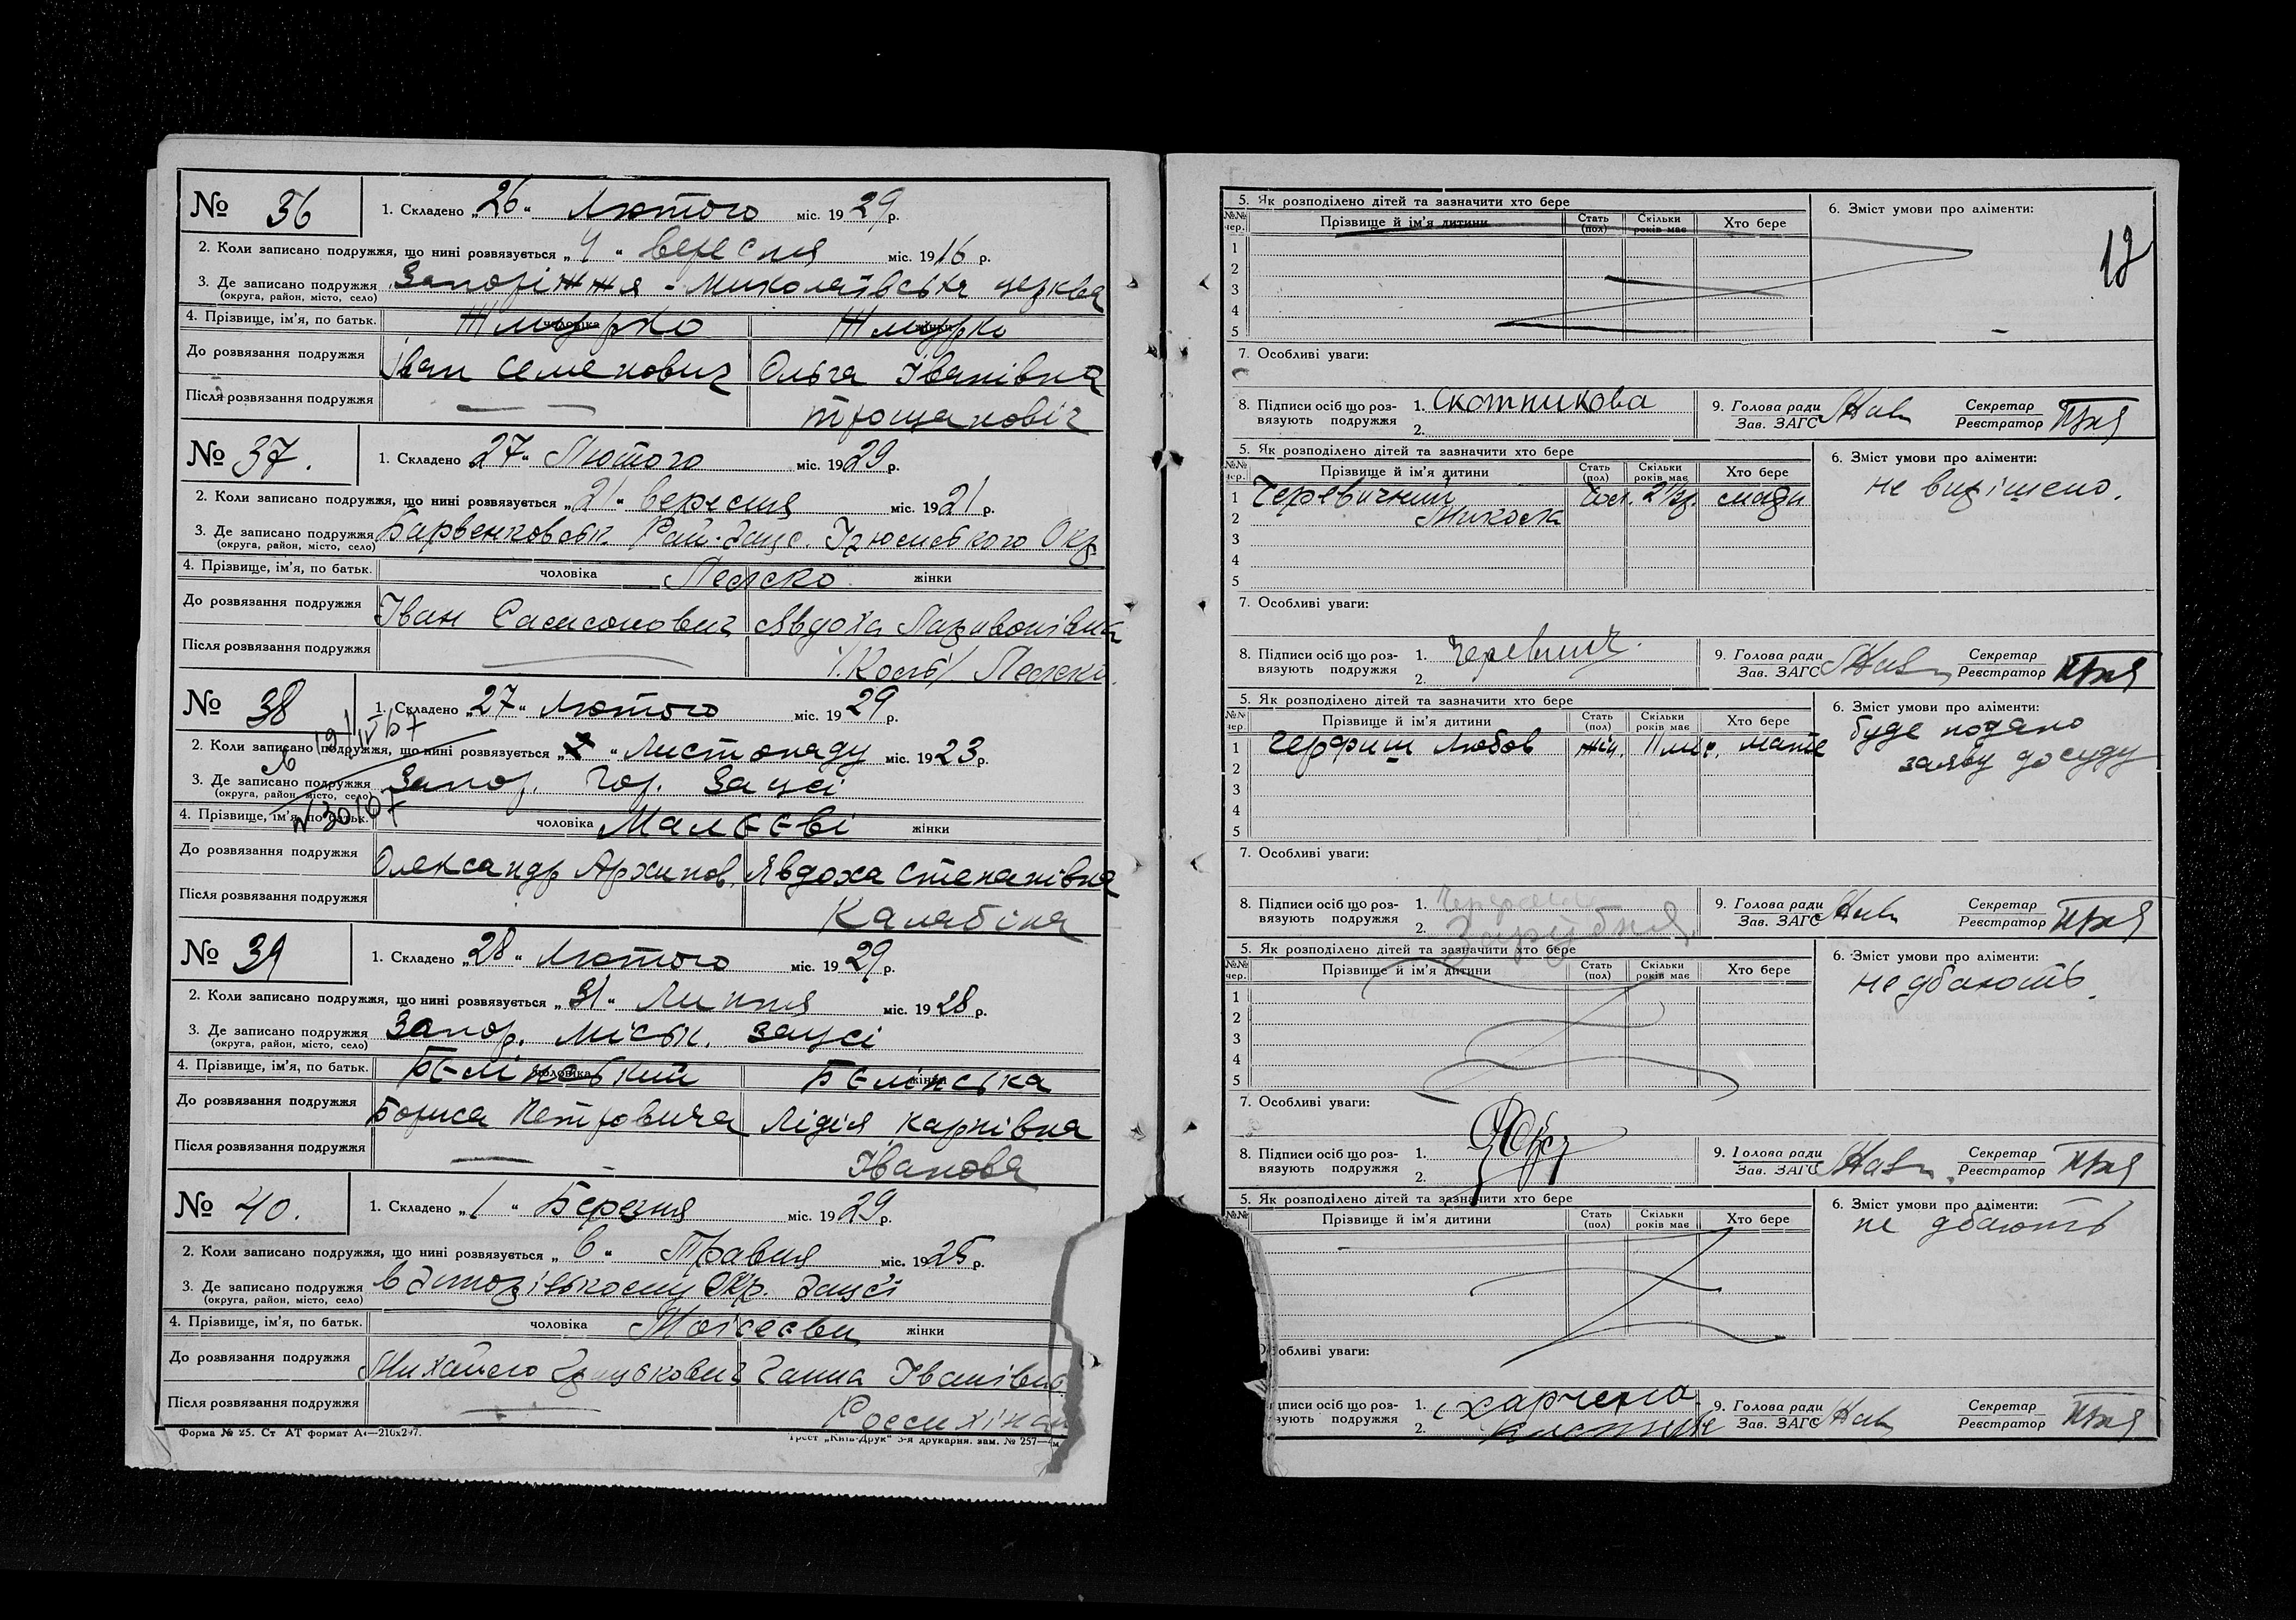 № 36
1. Складено „26“ Лютого міс. 1929 р.
2. Коли записано подружжя, що нині розвязується „4“ вересня міс. 1916 р.
3. Де записано подружжя Запоріжжя - Миколаївська церква
(округа, район, місто, село)
4. Прізвище, ім'я, по батьк. чоловіка Жмурко жінки Жмурко
До розвязання подружжя Іван Семенович Ольга Іванівна
Після розвязання подружжя — Трощановіч
№ 37.
1. Складено 27“ Лютого міс. 1929 р.
2. Коли записано подружжя, що нині розвязується „21“ вересня міс. 1921 р.
3. Де записано подружжя Барвенковськ. Рай. Загс. Ізюмського Окр
(округа, район, місто, село)
4. Прізвище, ім'я, по батьк. чоловіка жінки
До розвязання подружжя Іван Самсонович Явдоха
Після розвязання подружжя —
№ 38
1. Складено „27“ Лютого міс. 1929 р.
2. Коли записано подружжя, що нині розвязується „ “ Листопаду міс. 1923 р.
3. Де записано подружжя Запор. Гор. Загсі
(округа, район, місто, село)
4. Прізвище, ім'я, по батьк. чоловіка Малєєві жінки
До розвязання подружжя Олександр Архипов. Явдоха Степанівна
Після розвязання подружжя Калябіна
№ 39
1. Складено „28“ Лютого міс. 1929 р.
2. Коли записано подружжя, що нині розвязується „31“ Липня міс. 1928 р.
3. Де записано подружжя Запор. Міськ. загсі
(округа, район, місто, село)
4. Прізвище, ім'я, по батьк. чоловіка Бєлінський жінки Бєлінська
До розвязання подружжя Бориса Петровича Лідія Карпівна
Після розвязання подружжя — Іванова
№ 40.
1. Складено „1“ Березня міс. 1929 р.
2. Коли записано подружжя, що нині розвязується „6“ Травня міс. 1925 р.
3. Де записано подружжя в Запорізькому Окр. Загсі
(округа, район, місто, село)
4. Прізвище, ім'я, по батьк. чоловіка Мойсеєви жінки
До розвязання подружжя Михайло Ганна Іванівна
Після розвязання подружжя —
Форма № 25. Ст АТ формат А4—210х297.
Трест „Київ-Друк“ 3-я друкарня. зам. № 257—
12
5. Як розподілено дітей та зазначити хто бере
6. Зміст умови про аліменти:
№№ чер. Прізвище й ім'я дитини Стать (пол) Скільки років має Хто бере
1
2
3
4
5
7. Особливі уваги:
8. Підписи осіб що роз- 1. Скотникова
вязують подружжя 2.
9. Голова ради Зав. ЗАГС Секретар Реєстратор
5. Як розподілено дітей та зазначити хто бере
6. Зміст умови про аліменти:
не вирішено.
№№ чер. Прізвище й ім'я дитини Стать (пол) Скільки років має Хто бере
1 Черевичний
2 Микола
3
4
5
7. Особливі уваги:
8. Підписи осіб що роз- 1.
вязують подружжя 2.
9. Голова ради Зав. ЗАГС Секретар Реєстратор
5. Як розподілено дітей та зазначити хто бере
6. Зміст умови про аліменти:
буде подано
заяву до суду
№№ чер. Прізвище й ім'я дитини Стать (пол) Скільки років має Хто бере
1 Любов жін. 11 міс. мате
2
3
4
5
7. Особливі уваги:
8. Підписи осіб що роз- 1.
вязують подружжя 2.
9. Голова ради Зав. ЗАГС Секретар Реєстратор
5. Як розподілено дітей та зазначити хто бере
6. Зміст умови про аліменти:
не дбають.
№№ чер. Прізвище й ім'я дитини Стать (пол) Скільки років має Хто бере
1
2
3
4
5
7. Особливі уваги:
8. Підписи осіб що роз- 1.
вязують подружжя 2.
9. Голова ради Зав. ЗАГС Секретар Реєстратор
5. Як розподілено дітей та зазначити хто бере
6. Зміст умови про аліменти:
не дбають
№№ Прізвище й ім'я дитини Стать (пол) Скільки років має Хто бере
обливі уваги:
писи осіб що роз- 1.
зують подружжя 2.
9. Голова ради Зав. ЗАГС Секретар Реєстратор